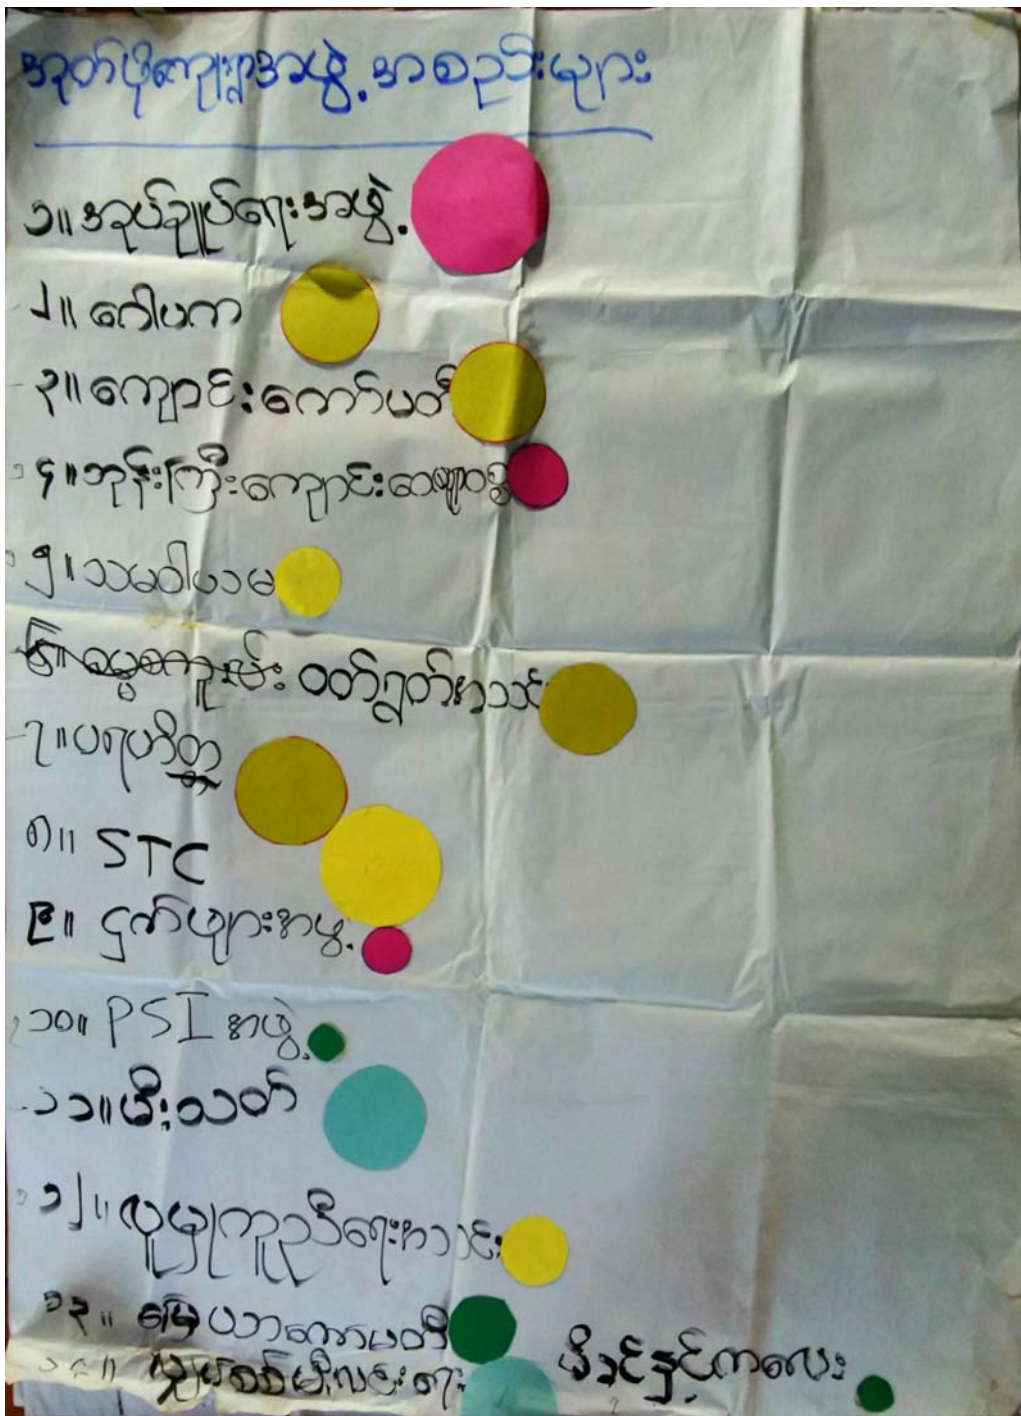 အုတ်ဖိုကျေးရွာအဖွဲ့အစည်းများ
၁။ အုပ်ချုပ်ရေးအဖွဲ့
၂။ ဂေါပက
၃။ ကျောင်းကော်မတီ
၄။ ဘုန်းကြီးကျောင်းဝေယျာဝစ္စ
၅။ သမဝါယမ
၆။ ဓမ္မစကူးရမ်း ဝတ်ရွတ်အသင်း
၇။ ပရဟိတ္တ
၈။ STC
၉။ ငှက်ဖျားအဖွဲ့
၁၀။ PSI အဖွဲ့
၁၁။ မီးသတ်
၁၂။ လူမှုကူညီရေးအသင်း
၁၃။ မြေယာကော်မတီ
၁၄။ လျှပ်စစ်မီးလင်းရေး
မိခင်နှင့်ကလေး